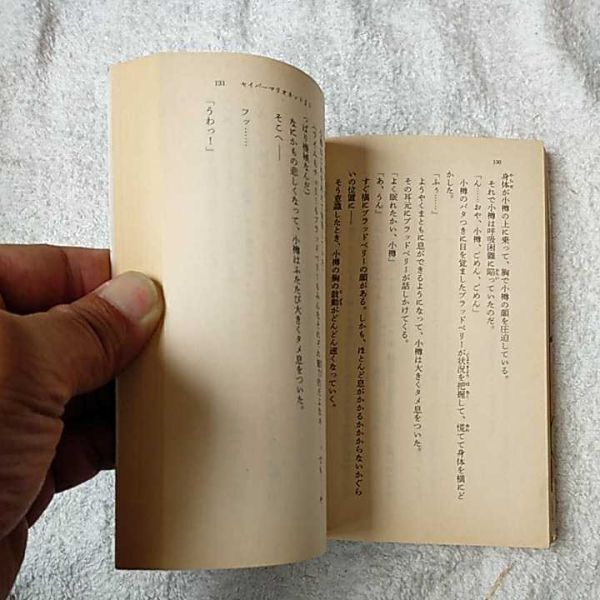 130
身体が小樽の上に乗って、胸で小樽の顔を圧迫している。
それで小樽は呼吸困難に陥っていたのだ。
「ん……おや、小樽、ごめん、ごめん」
小樽のバタつきに目を覚ましたブラッドベリーが状況を把握して、慌てて身体を横にど
かした。
「ふぅ……」
ようやくまともに息ができるようになって、小樽は大きくタメ息をついた。
その耳元にブラッドベリーが話しかけてくる。
「よく眠れたかい、小樽」
「あ、うん」
すぐ横にブラッドベリーの顔がある。しかも、ほとんど息がかかるかかからないかぐら
いの位置に――
そう意識したとき、小樽の胸の鼓動がどんどん速くなっていく。
131
セイバーマリオネットJ
っぱり機械なんだ）
なにかもの悲しくなって、小樽はふたたび大きくタメ息をついた。
そこへ――
フッ……
「うわっ！」